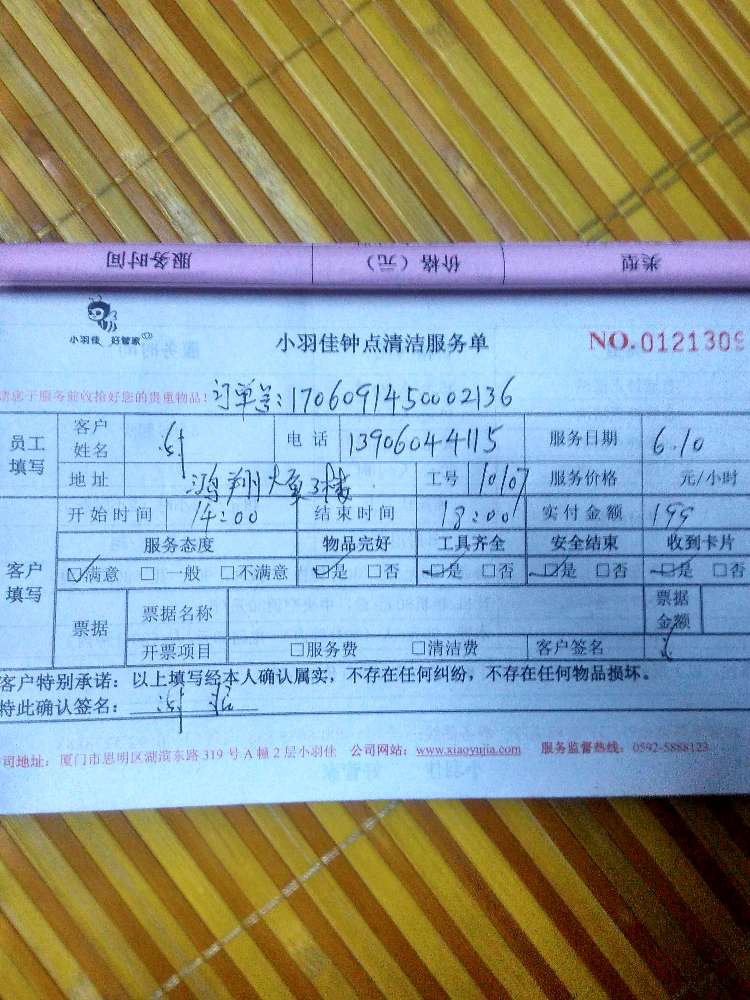 服务时间 价格（元） 类型
小羽佳 好管家
小羽佳钟点清洁服务单 NO.0121309
请您于服务前收拾好您的贵重物品！ 订单号：1706091450002136
员工填写 客户姓名 谢 电话 13906044115 服务日期 6.10
地址 鸿翔大厦3楼 工号 10107 服务价格 元/小时
客户填写 开始时间 14:00 结束时间 18:00 实付金额 199
服务态度 物品完好 工具齐全 安全结束 收到卡片
☑满意 □一般 □不满意 ☑是 □否 ☑是 □否 ☑是 □否 ☑是 □否
票据 票据名称 票据金额
开票项目 □服务费 □清洁费 客户签名
客户特别承诺：以上填写经本人确认属实，不存在任何纠纷，不存在任何物品损坏。
特此确认签名：谢
司地址：厦门市思明区湖滨东路319号A幢2层小羽佳 公司网站：www.xiaoyujia.com 服务监督热线：0592-5888123